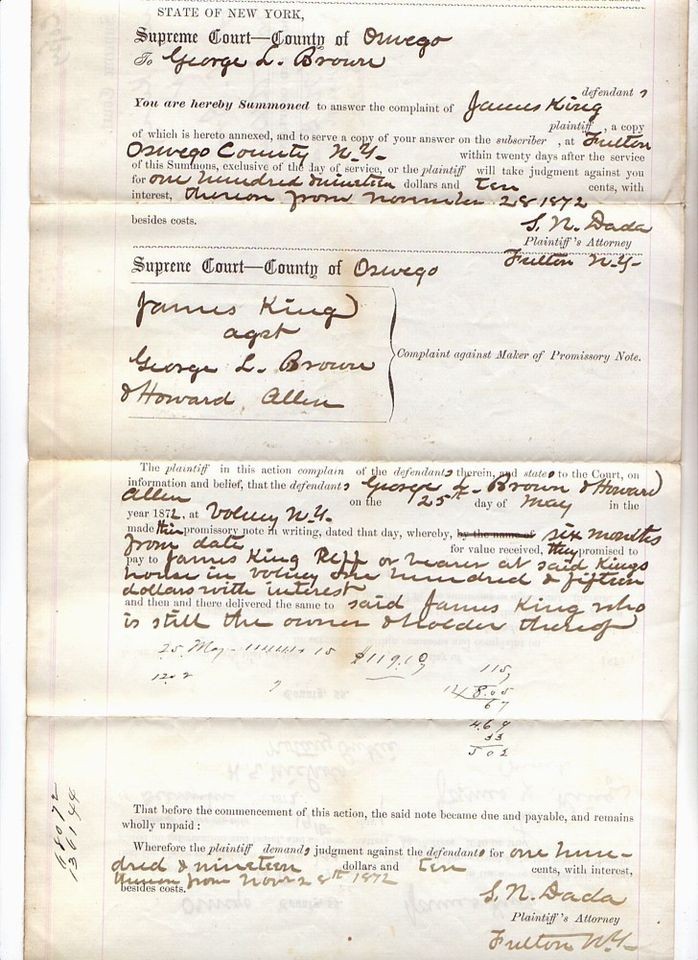 STATE OF NEW YORK,
Supreme Court—County of Oswego
To George L. Brown
defendants
You are hereby Summoned to answer the complaint of James King
plaintiff, a copy
of which is hereto annexed, and to serve a copy of your answer on the subscriber, at Fulton
Oswego County N.Y. within twenty days after the service
of this Summons, exclusive of the day of service, or the plaintiff will take judgment against you
for one hundred & nineteen dollars and ten cents, with
interest, thereon from November 28 1872
besides costs.
S. N. Dada
Plaintiff's Attorney
Fulton N.Y.
Supreme Court—County of Oswego
James King
agst
George L. Brown
& Howard Allen
Complaint against Maker of Promissory Note.
The plaintiff in this action complain of the defendants therein, and states to the Court, on
information and belief, that the defendants George L. Brown & Howard
Allen on the 25th day of May in the
year 1872, at Volney N.Y.
made their promissory note in writing, dated that day, whereby, by the name of six months
from date for value received, they promised to
pay to James King Plff or bearer at said Kings
house in Volney one hundred & fifteen
dollars with interest
and then and there delivered the same to said James King who
is still the owner & holder thereof
25 May 15 $119.10
115
7
12 8.05
67
4.69
33
502
68072
136144
That before the commencement of this action, the said note became due and payable, and remains
wholly unpaid:
Wherefore the plaintiff demands judgment against the defendants for one hun-
dred & nineteen dollars and ten cents, with interest,
thereon from Novr 28th 1872
besides costs.
S. N. Dada
Plaintiff's Attorney
Fulton N.Y.